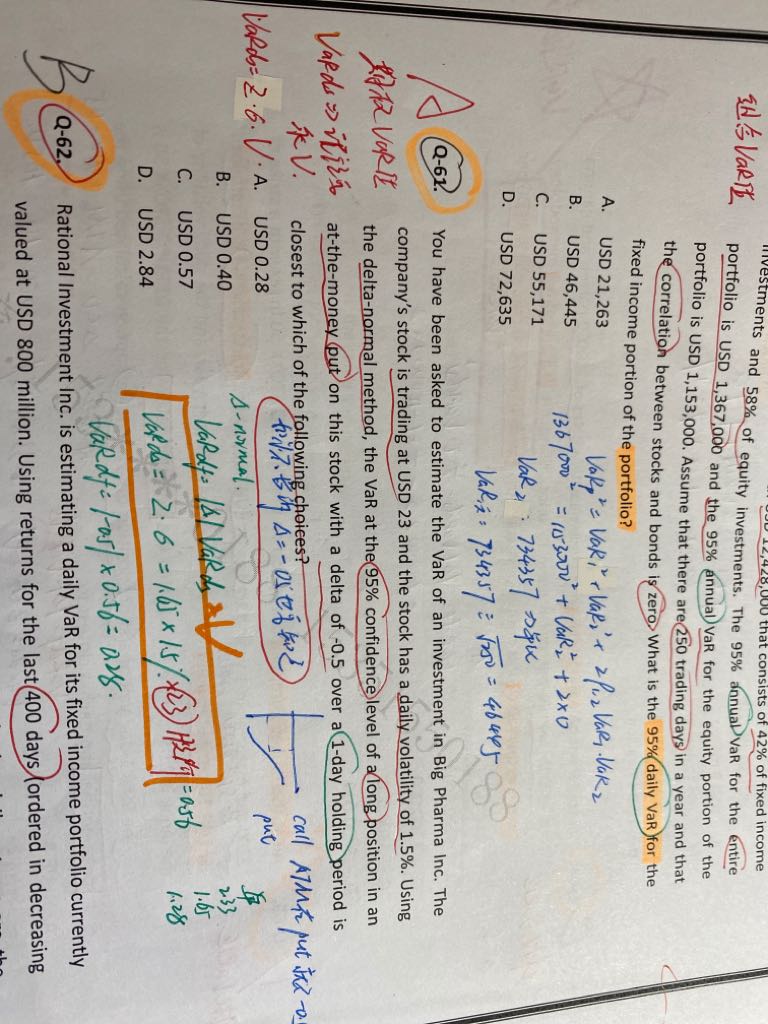 investments and 58% of equity investments. The 95% annual VaR for the entire
portfolio is USD 1,367,000 and the 95% annual VaR for the equity portion of the
portfolio is USD 1,153,000. Assume that there are 250 trading days in a year and that
the correlation between stocks and bonds is zero. What is the 95% daily VaR for the
fixed income portion of the portfolio?
组合VaR
A. USD 21,263
B. USD 46,445
C. USD 55,171
D. USD 72,635
VaRp² = VaR₁² + VaR₂² + 2ρ₁.₂ VaR₁.VaR₂
1367000² = 1153000² + VaR₂² + 2×0
VaR₂ : 734357
VaR₂ : 734357 ÷ √250 = 46445
A
Q-61. You have been asked to estimate the VaR of an investment in Big Pharma Inc. The
company's stock is trading at USD 23 and the stock has a daily volatility of 1.5%. Using
the delta-normal method, the VaR at the 95% confidence level of a long position in an
at-the-money put on this stock with a delta of -0.5 over a 1-day holding period is
closest to which of the following choices?
期权VaR
VaRds
求V.
VaRds = Z·б·V.
A. USD 0.28
B. USD 0.40
C. USD 0.57
D. USD 2.84
Δ=-0.5
call ATM
put
Δ-normal.
VaRdf = |Δ| VaRds
VaRds = Z·б = 1.65 × 1.5% × 23 = 0.56
VaRdf = |-0.5| × 0.56 = 0.28.
单
2.33
1.65
1.28
B
Q-62. Rational Investment Inc. is estimating a daily VaR for its fixed income portfolio currently
valued at USD 800 million. Using returns for the last 400 days (ordered in decreasing